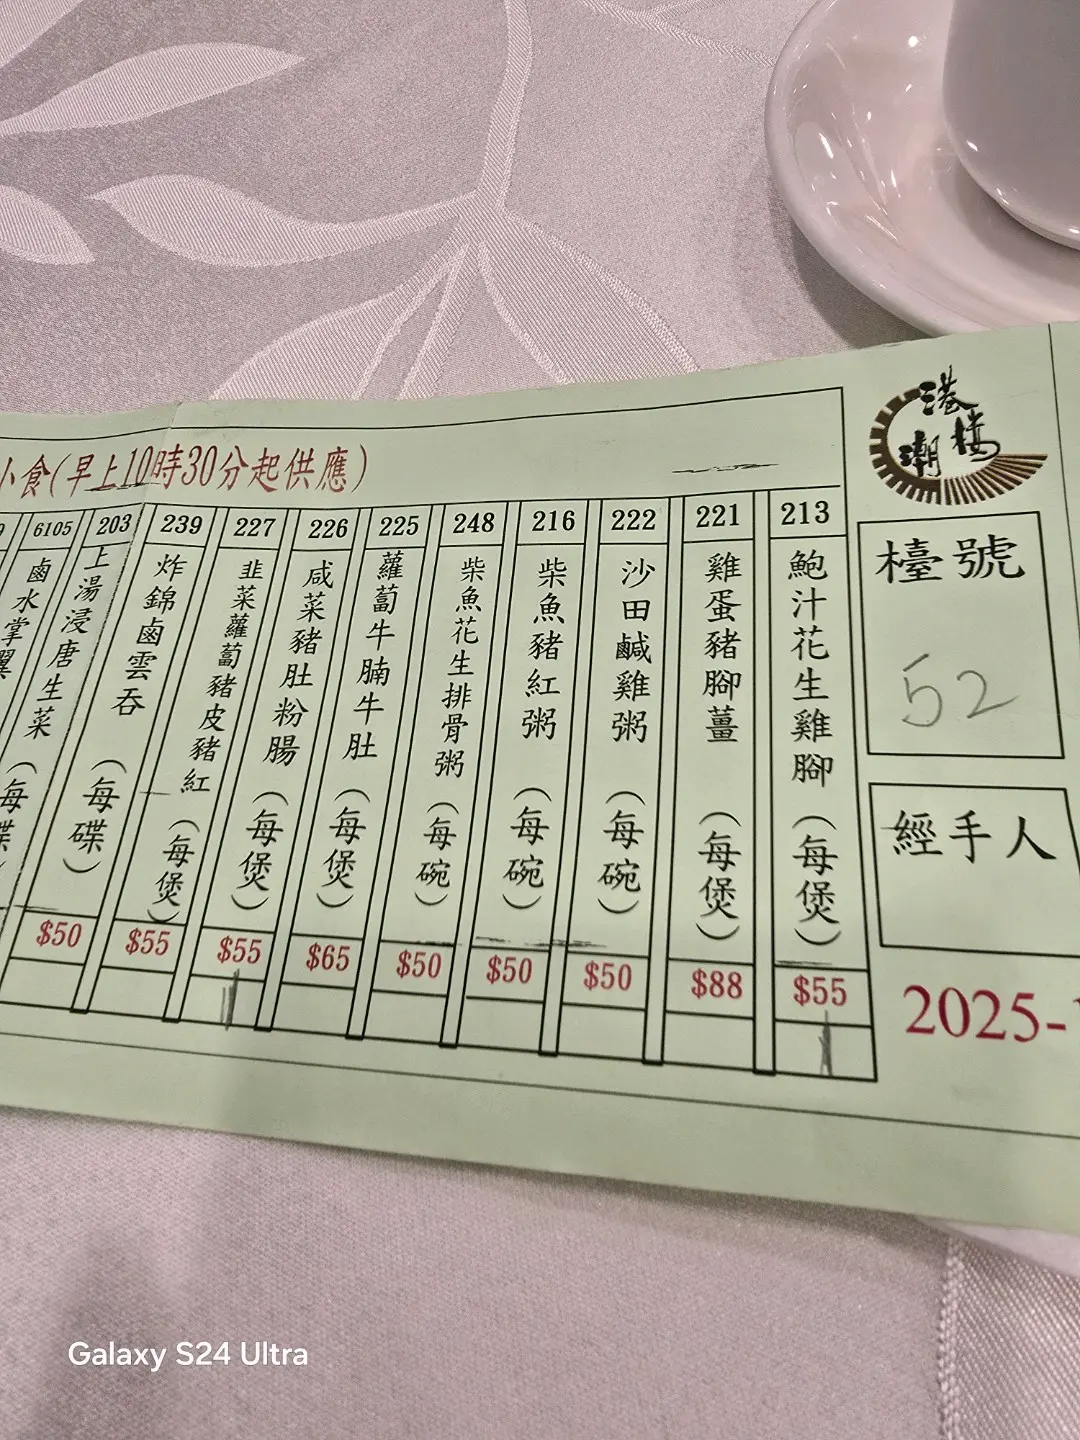 港
潮樓
檯號
52
經手人
2025-
小食(早上10時30分起供應)
213
鮑汁花生雞腳(每煲)
$55
221
雞蛋豬腳薑(每煲)
$88
222
沙田鹹雞粥(每碗)
$50
216
柴魚豬紅粥(每碗)
$50
248
柴魚花生排骨粥(每碗)
$50
225
蘿蔔牛腩牛肚(每煲)
$65
226
咸菜豬肚粉腸(每煲)
$55
227
韭菜蘿蔔豬皮豬紅(每煲)
$55
239
炸錦鹵雲吞(每碟)
$50
203
上湯浸唐生菜(每碟
6105
鹵水掌翼
Galaxy S24 Ultra